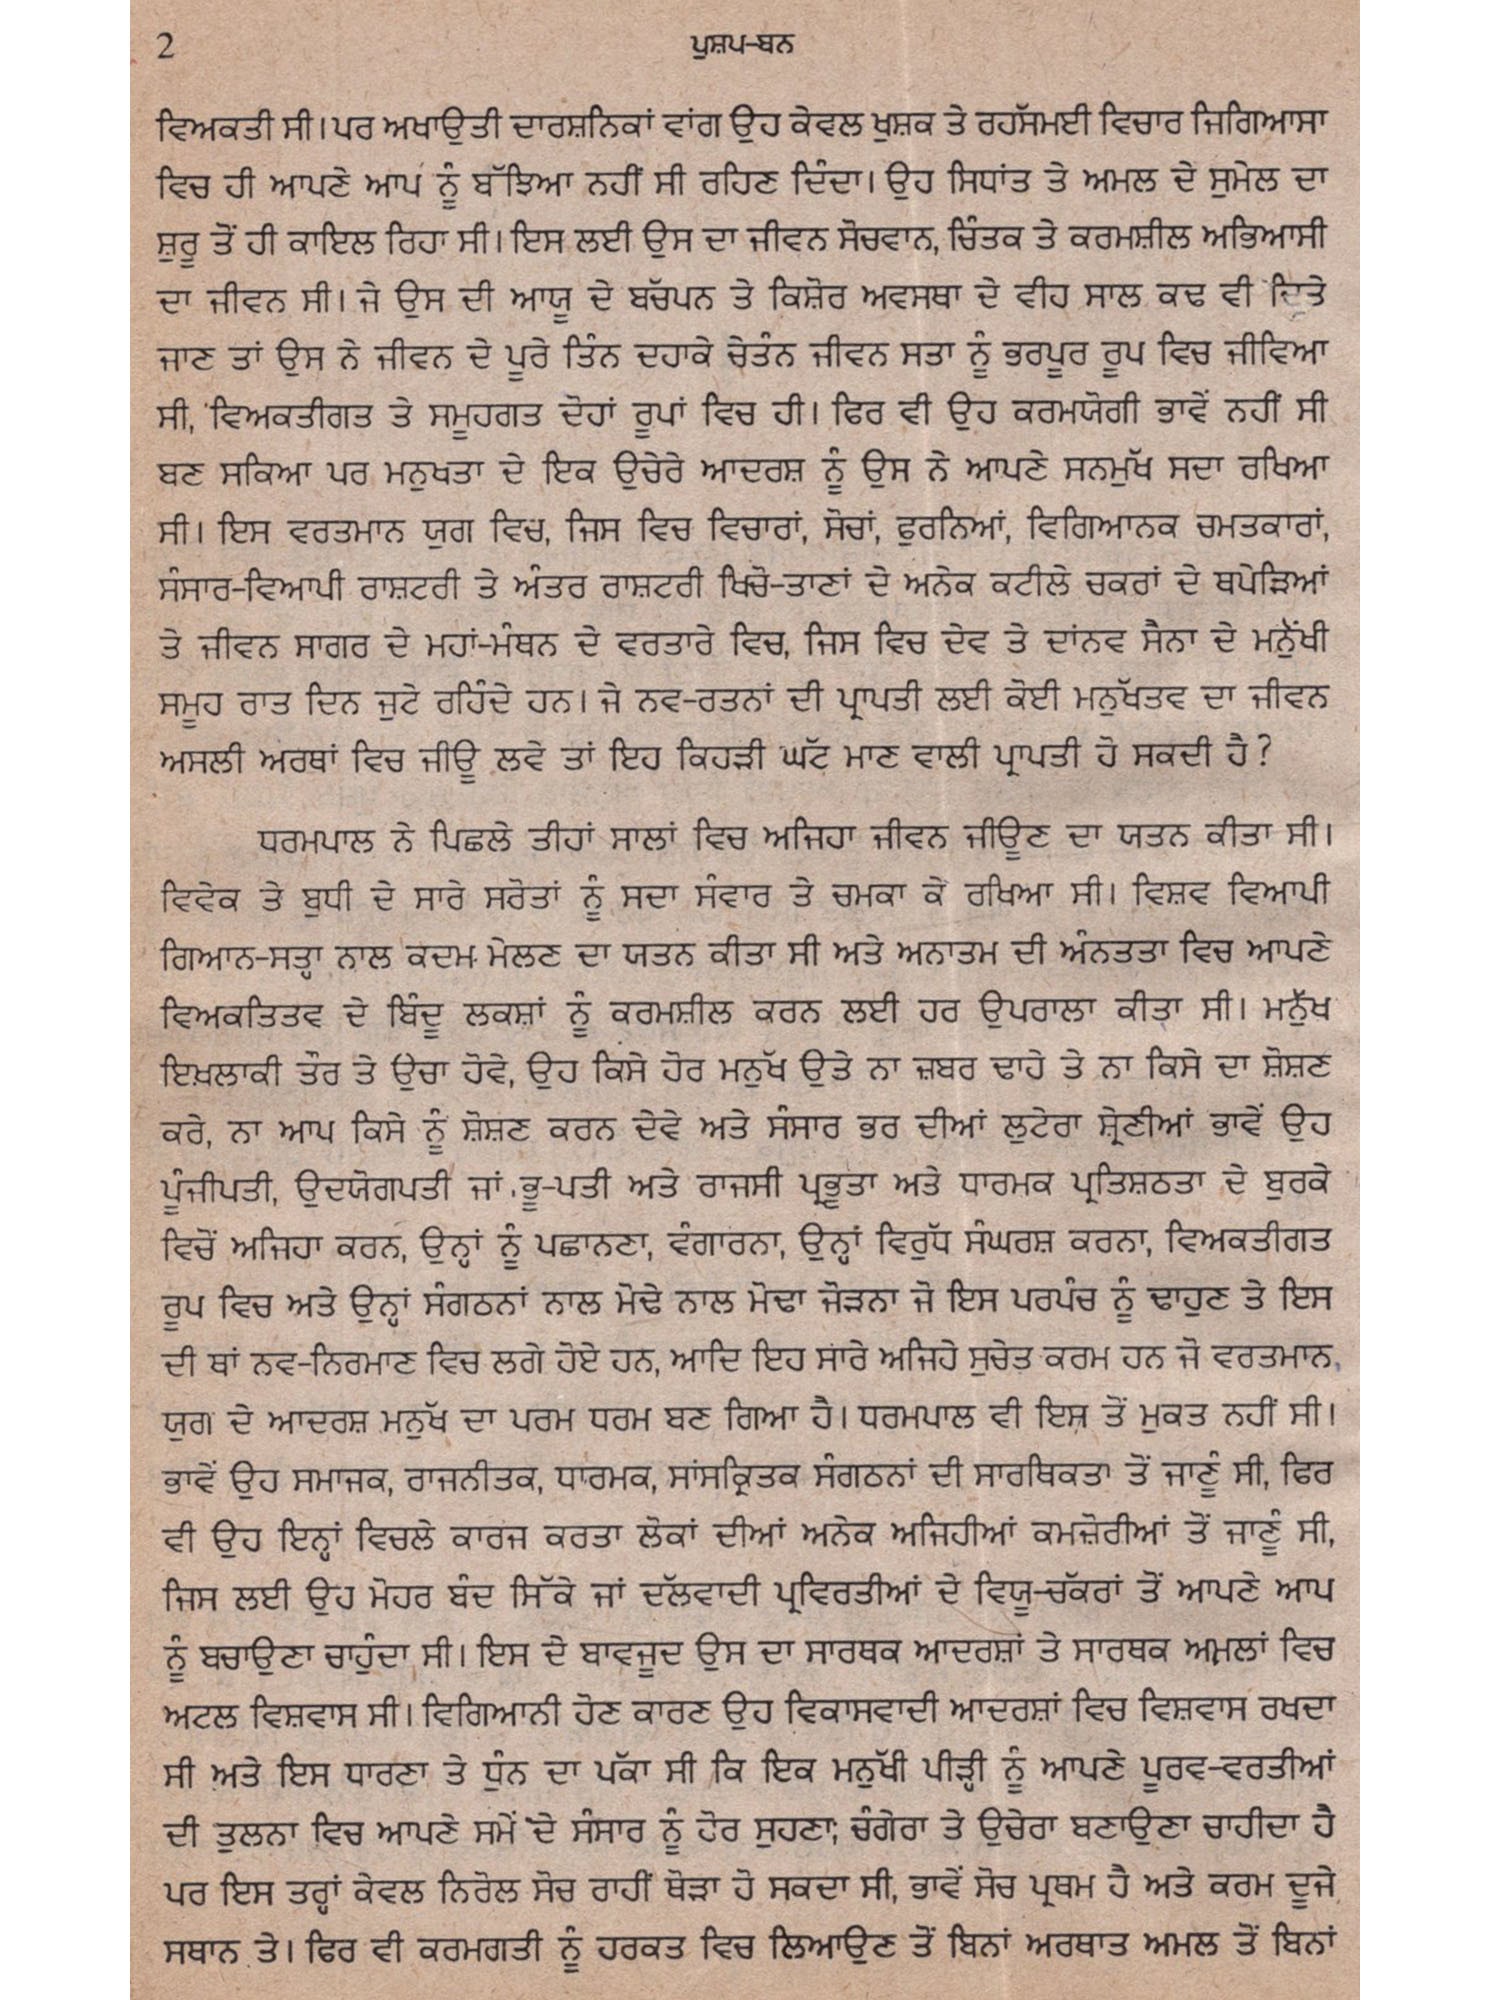 2
ਪੁਸ਼ਪ-ਬਨ
ਵਿਅਕਤੀ ਸੀ। ਪਰ ਅਖਾਉਤੀ ਦਾਰਸ਼ਨਿਕਾਂ ਵਾਂਗ ਉਹ ਕੇਵਲ ਖੁਸ਼ਕ ਤੇ ਰਹੱਸਮਈ ਵਿਚਾਰ ਜਿਗਿਆਸਾ
ਵਿਚ ਹੀ ਆਪਣੇ ਆਪ ਨੂੰ ਬੱਝਿਆ ਨਹੀਂ ਸੀ ਰਹਿਣ ਦਿੰਦਾ। ਉਹ ਸਿਧਾਂਤ ਤੇ ਅਮਲ ਦੇ ਸੁਮੇਲ ਦਾ
ਸ਼ੁਰੂ ਤੋਂ ਹੀ ਕਾਇਲ ਰਿਹਾ ਸੀ। ਇਸ ਲਈ ਉਸ ਦਾ ਜੀਵਨ ਸੋਚਵਾਨ, ਚਿੰਤਕ ਤੇ ਕਰਮਸ਼ੀਲ ਅਭਿਆਸੀ
ਦਾ ਜੀਵਨ ਸੀ। ਜੇ ਉਸ ਦੀ ਆਯੂ ਦੇ ਬਚੱਪਨ ਤੇ ਕਿਸ਼ੋਰ ਅਵਸਥਾ ਦੇ ਵੀਹ ਸਾਲ ਕਢ ਵੀ ਦਿਤੇ
ਜਾਣ ਤਾਂ ਉਸ ਨੇ ਜੀਵਨ ਦੇ ਪੂਰੇ ਤਿੰਨ ਦਹਾਕੇ ਚੇਤੰਨ ਜੀਵਨ ਸਤਾ ਨੂੰ ਭਰਪੂਰ ਰੂਪ ਵਿਚ ਜੀਵਿਆ
ਸੀ, ਵਿਅਕਤੀਗਤ ਤੇ ਸਮੂਹਗਤ ਦੋਹਾਂ ਰੂਪਾਂ ਵਿਚ ਹੀ। ਫਿਰ ਵੀ ਉਹ ਕਰਮਯੋਗੀ ਭਾਵੇਂ ਨਹੀਂ ਸੀ
ਬਣ ਸਕਿਆ ਪਰ ਮਨੁਖਤਾ ਦੇ ਇਕ ਉਚੇਰੇ ਆਦਰਸ਼ ਨੂੰ ਉਸ ਨੇ ਆਪਣੇ ਸਨਮੁੱਖ ਸਦਾ ਰਖਿਆ
ਸੀ। ਇਸ ਵਰਤਮਾਨ ਯੁਗ ਵਿਚ, ਜਿਸ ਵਿਚ ਵਿਚਾਰਾਂ, ਸੋਚਾਂ, ਫੁਰਨਿਆਂ, ਵਿਗਿਆਨਕ ਚਮਤਕਾਰਾਂ,
ਸੰਸਾਰ-ਵਿਆਪੀ ਰਾਸ਼ਟਰੀ ਤੇ ਅੰਤਰ ਰਾਸ਼ਟਰੀ ਖਿਚੋ-ਤਾਣਾਂ ਦੇ ਅਨੇਕ ਕਟੀਲੇ ਚਕਰਾਂ ਦੇ ਥਪੇੜਿਆਂ
ਤੇ ਜੀਵਨ ਸਾਗਰ ਦੇ ਮਹਾਂ-ਮੰਥਨ ਦੇ ਵਰਤਾਰੇ ਵਿਚ, ਜਿਸ ਵਿਚ ਦੇਵ ਤੇ ਦਾਂਨਵ ਸੈਨਾ ਦੇ ਮਨੁੱਖੀ
ਸਮੂਹ ਰਾਤ ਦਿਨ ਜੁਟੇ ਰਹਿੰਦੇ ਹਨ। ਜੇ ਨਵ-ਰਤਨਾਂ ਦੀ ਪ੍ਰਾਪਤੀ ਲਈ ਕੋਈ ਮਨੁੱਖਤਵ ਦਾ ਜੀਵਨ
ਅਸਲੀ ਅਰਥਾਂ ਵਿਚ ਜੀਊ ਲਵੇ ਤਾਂ ਇਹ ਕਿਹੜੀ ਘੱਟ ਮਾਣ ਵਾਲੀ ਪ੍ਰਾਪਤੀ ਹੋ ਸਕਦੀ ਹੈ ?
ਧਰਮਪਾਲ ਨੇ ਪਿਛਲੇ ਤੀਹਾਂ ਸਾਲਾਂ ਵਿਚ ਅਜਿਹਾ ਜੀਵਨ ਜੀਊਣ ਦਾ ਯਤਨ ਕੀਤਾ ਸੀ।
ਵਿਵੇਕ ਤੇ ਬੁਧੀ ਦੇ ਸਾਰੇ ਸਰੋਤਾਂ ਨੂੰ ਸਦਾ ਸੰਵਾਰ ਤੇ ਚਮਕਾ ਕੇ ਰਖਿਆ ਸੀ। ਵਿਸ਼ਵ ਵਿਆਪੀ
ਗਿਆਨ-ਸਤ੍ਹਾ ਨਾਲ ਕਦਮ ਮੇਲਣ ਦਾ ਯਤਨ ਕੀਤਾ ਸੀ ਅਤੇ ਅਨਾਤਮ ਦੀ ਅੰਨਤਤਾ ਵਿਚ ਆਪਣੇ
ਵਿਅਕਤਿਤਵ ਦੇ ਬਿੰਦੂ ਲਕਸ਼ਾਂ ਨੂੰ ਕਰਮਸ਼ੀਲ ਕਰਨ ਲਈ ਹਰ ਉਪਰਾਲਾ ਕੀਤਾ ਸੀ। ਮਨੁੱਖ
ਇਖ਼ਲਾਕੀ ਤੌਰ ਤੇ ਉਚਾ ਹੋਵੇ, ਉਹ ਕਿਸੇ ਹੋਰ ਮਨੁਖ ਉਤੇ ਨਾ ਜ਼ਬਰ ਢਾਹੇ ਤੇ ਨਾ ਕਿਸੇ ਦਾ ਸ਼ੋਸ਼ਣ
ਕਰੇ, ਨਾ ਆਪ ਕਿਸੇ ਨੂੰ ਸ਼ੋਸ਼ਣ ਕਰਨ ਦੇਵੇ ਅਤੇ ਸੰਸਾਰ ਭਰ ਦੀਆਂ ਲੁਟੇਰਾ ਸ਼੍ਰੇਣੀਆਂ ਭਾਵੇਂ ਉਹ
ਪੂੰਜੀਪਤੀ, ਉਦਯੋਗਪਤੀ ਜਾਂ ਭੂ-ਪਤੀ ਅਤੇ ਰਾਜਸੀ ਪ੍ਰਭੂਤਾ ਅਤੇ ਧਾਰਮਕ ਪ੍ਰਤਿਸ਼ਠਤਾ ਦੇ ਬੁਰਕੇ
ਵਿਚੋਂ ਅਜਿਹਾ ਕਰਨ, ਉਨ੍ਹਾਂ ਨੂੰ ਪਛਾਨਣਾ, ਵੰਗਾਰਨਾ, ਉਨ੍ਹਾਂ ਵਿਰੁੱਧ ਸੰਘਰਸ਼ ਕਰਨਾ, ਵਿਅਕਤੀਗਤ
ਰੂਪ ਵਿਚ ਅਤੇ ਉਨ੍ਹਾਂ ਸੰਗਠਨਾਂ ਨਾਲ ਮੋਢੇ ਨਾਲ ਮੋਢਾ ਜੋੜਨਾ ਜੋ ਇਸ ਪਰਪੰਚ ਨੂੰ ਢਾਹੁਣ ਤੇ ਇਸ
ਦੀ ਥਾਂ ਨਵ-ਨਿਰਮਾਣ ਵਿਚ ਲਗੇ ਹੋਏ ਹਨ, ਆਦਿ ਇਹ ਸਾਰੇ ਅਜਿਹੇ ਸੁਚੇਤ ਕਰਮ ਹਨ ਜੋ ਵਰਤਮਾਨ
ਯੁਗ ਦੇ ਆਦਰਸ਼ ਮਨੁੱਖ ਦਾ ਪਰਮ ਧਰਮ ਬਣ ਗਿਆ ਹੈ। ਧਰਮਪਾਲ ਵੀ ਇਸ ਤੋਂ ਮੁਕਤ ਨਹੀਂ ਸੀ।
ਭਾਵੇਂ ਉਹ ਸਮਾਜਕ, ਰਾਜਨੀਤਕ, ਧਾਰਮਕ, ਸਾਂਸਕ੍ਰਿਤਕ ਸੰਗਠਨਾਂ ਦੀ ਸਾਰਥਿਕਤਾ ਤੋਂ ਜਾਣੂੰ ਸੀ, ਫਿਰ
ਵੀ ਉਹ ਇਨ੍ਹਾਂ ਵਿਚਲੇ ਕਾਰਜ ਕਰਤਾ ਲੋਕਾਂ ਦੀਆਂ ਅਨੇਕ ਅਜਿਹੀਆਂ ਕਮਜ਼ੋਰੀਆਂ ਤੋਂ ਜਾਣੂੰ ਸੀ,
ਜਿਸ ਲਈ ਉਹ ਮੋਹਰ ਬੰਦ ਸਿੱਕੇ ਜਾਂ ਦੱਲਵਾਦੀ ਪ੍ਰਵਿਰਤੀਆਂ ਦੇ ਵਿਯੂ-ਚੱਕਰਾਂ ਤੋਂ ਆਪਣੇ ਆਪ
ਨੂੰ ਬਚਾਉਣਾ ਚਾਹੁੰਦਾ ਸੀ। ਇਸ ਦੇ ਬਾਵਜੂਦ ਉਸ ਦਾ ਸਾਰਥਕ ਆਦਰਸ਼ਾਂ ਤੇ ਸਾਰਥਕ ਅਮਲਾਂ ਵਿਚ
ਅਟਲ ਵਿਸ਼ਵਾਸ ਸੀ। ਵਿਗਿਆਨੀ ਹੋਣ ਕਾਰਣ ਉਹ ਵਿਕਾਸਵਾਦੀ ਆਦਰਸ਼ਾਂ ਵਿਚ ਵਿਸ਼ਵਾਸ ਰਖਦਾ
ਸੀ ਅਤੇ ਇਸ ਧਾਰਣਾ ਤੇ ਧੁੰਨ ਦਾ ਪੱਕਾ ਸੀ ਕਿ ਇਕ ਮਨੁੱਖੀ ਪੀੜ੍ਹੀ ਨੂੰ ਆਪਣੇ ਪੂਰਵ-ਵਰਤੀਆਂ
ਦੀ ਤੁਲਨਾ ਵਿਚ ਆਪਣੇ ਸਮੇਂ ਦੇ ਸੰਸਾਰ ਨੂੰ ਹੋਰ ਸੁਹਣਾ; ਚੰਗੇਰਾ ਤੇ ਉਚੇਰਾ ਬਣਾਉਣਾ ਚਾਹੀਦਾ ਹੈ
ਪਰ ਇਸ ਤਰ੍ਹਾਂ ਕੇਵਲ ਨਿਰੋਲ ਸੋਚ ਰਾਹੀਂ ਥੋੜਾ ਹੋ ਸਕਦਾ ਸੀ, ਭਾਵੇਂ ਸੋਚ ਪ੍ਰਥਮ ਹੈ ਅਤੇ ਕਰਮ ਦੂਜੇ
ਸਥਾਨ ਤੇ। ਫਿਰ ਵੀ ਕਰਮਗਤੀ ਨੂੰ ਹਰਕਤ ਵਿਚ ਲਿਆਉਣ ਤੋਂ ਬਿਨਾਂ ਅਰਥਾਤ ਅਮਲ ਤੋਂ ਬਿਨਾਂ